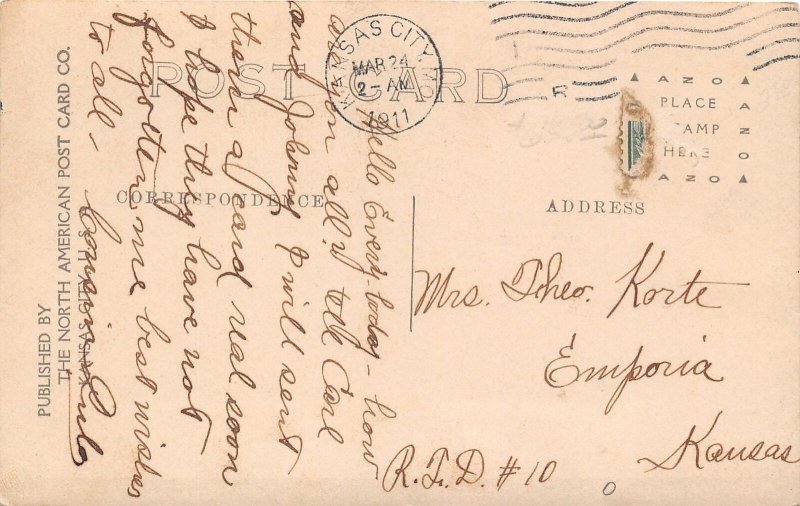 POST CARD
KANSAS CITY, MO.
MAR 24
2- AM
1911
R
AZO
PLACE
STAMP
HERE
AZO
AZO
CORRESPONDENCE
ADDRESS
PUBLISHED BY
THE NORTH AMERICAN POST CARD CO.
KANSAS CITY, U.S.A.
Hello Every-body - how
are you all? tell Carl
and Johnny I will sent
them a card real soon
I hope they have not
forgotten me best wishes
to all, Cousin
Mrs. Theo. Korte
Emporia
Kansas
R.F.D. #10